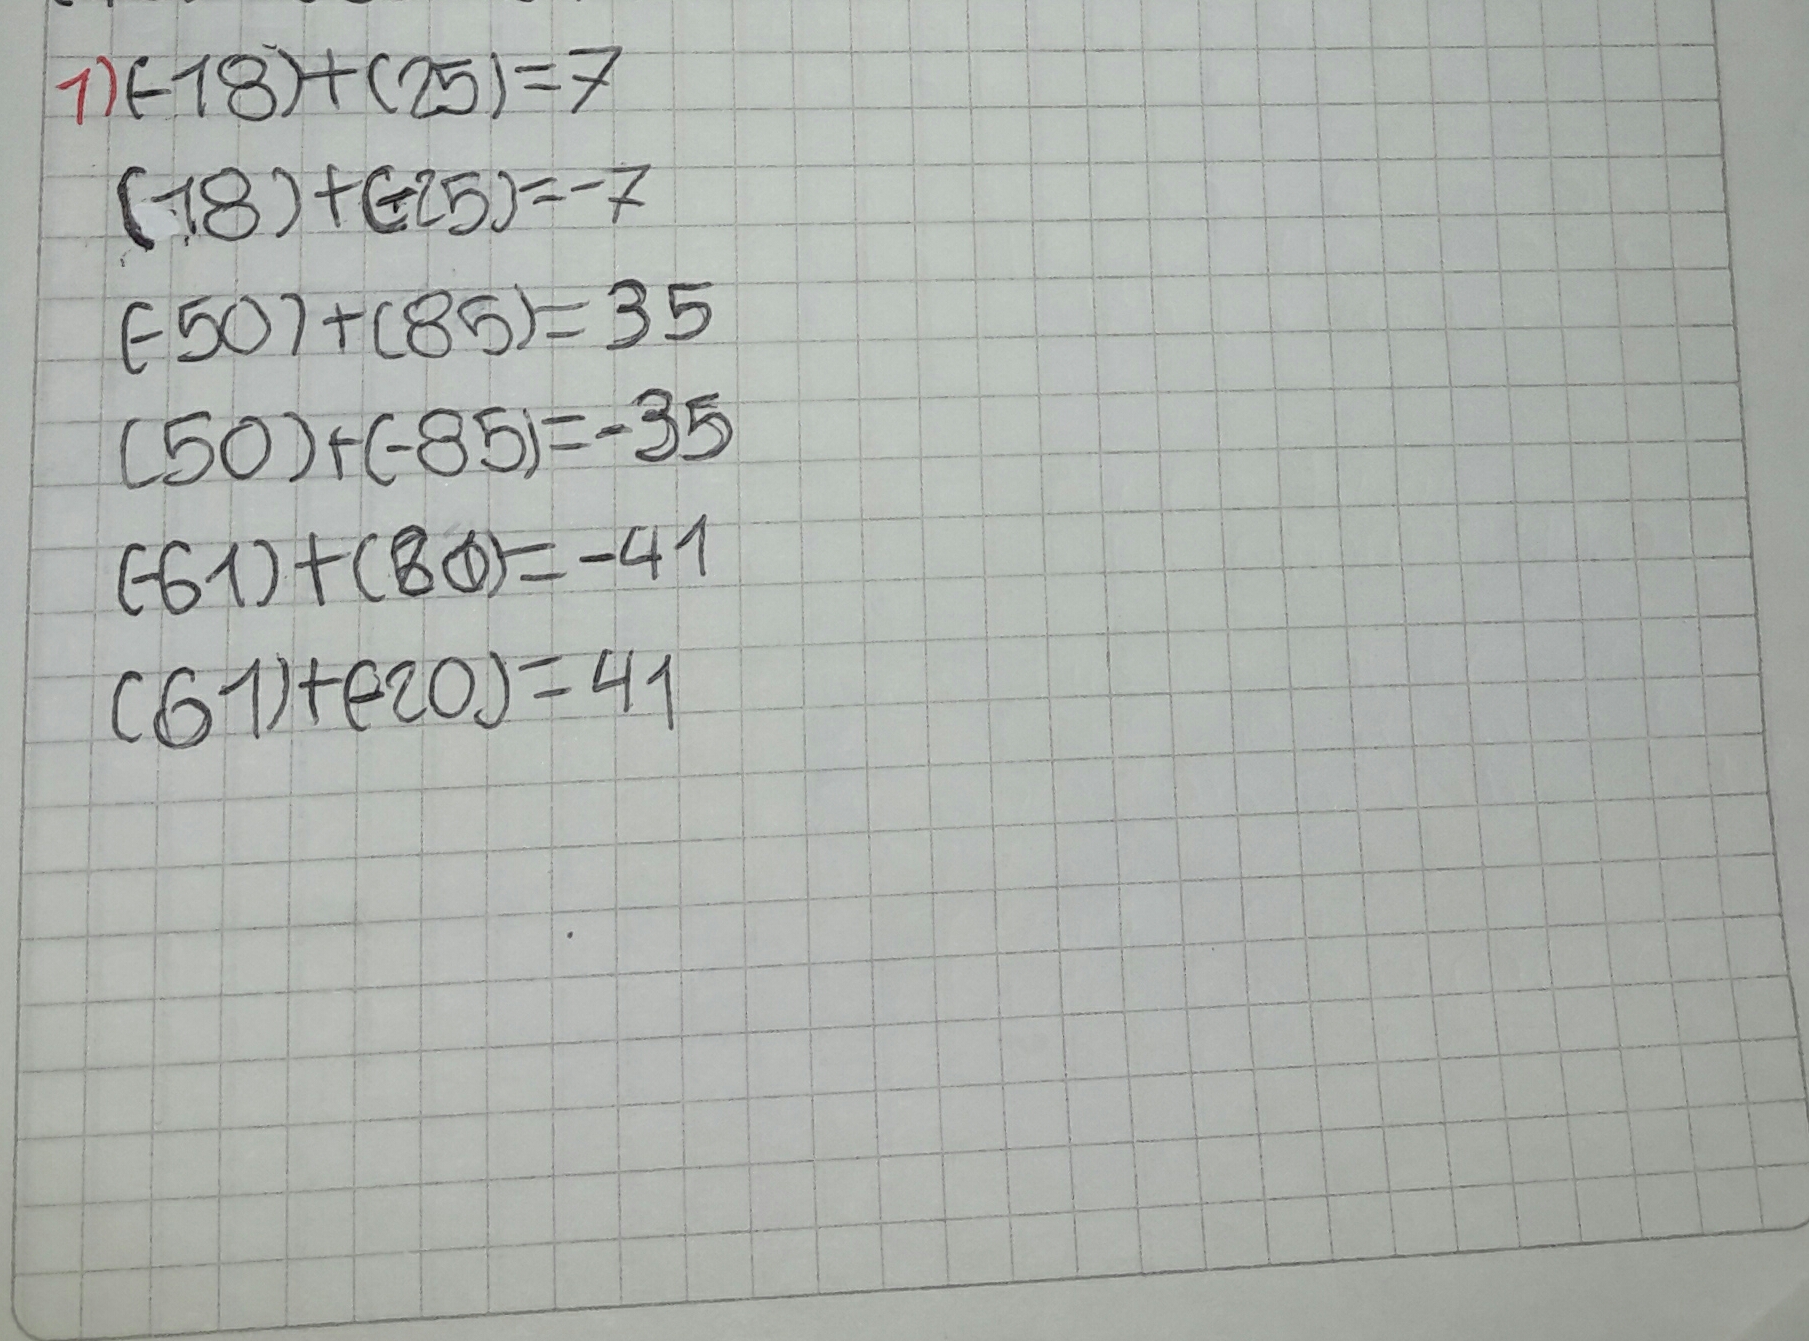 1)(-18)+(25)=7
(18)+(-25)=-7
(-50)+(85)=35
(50)+(-85)=-35
(-61)+(80)=-41
(61)+(-20)=41